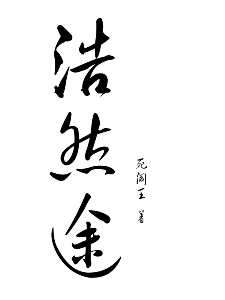 浩然途
死阎王 著